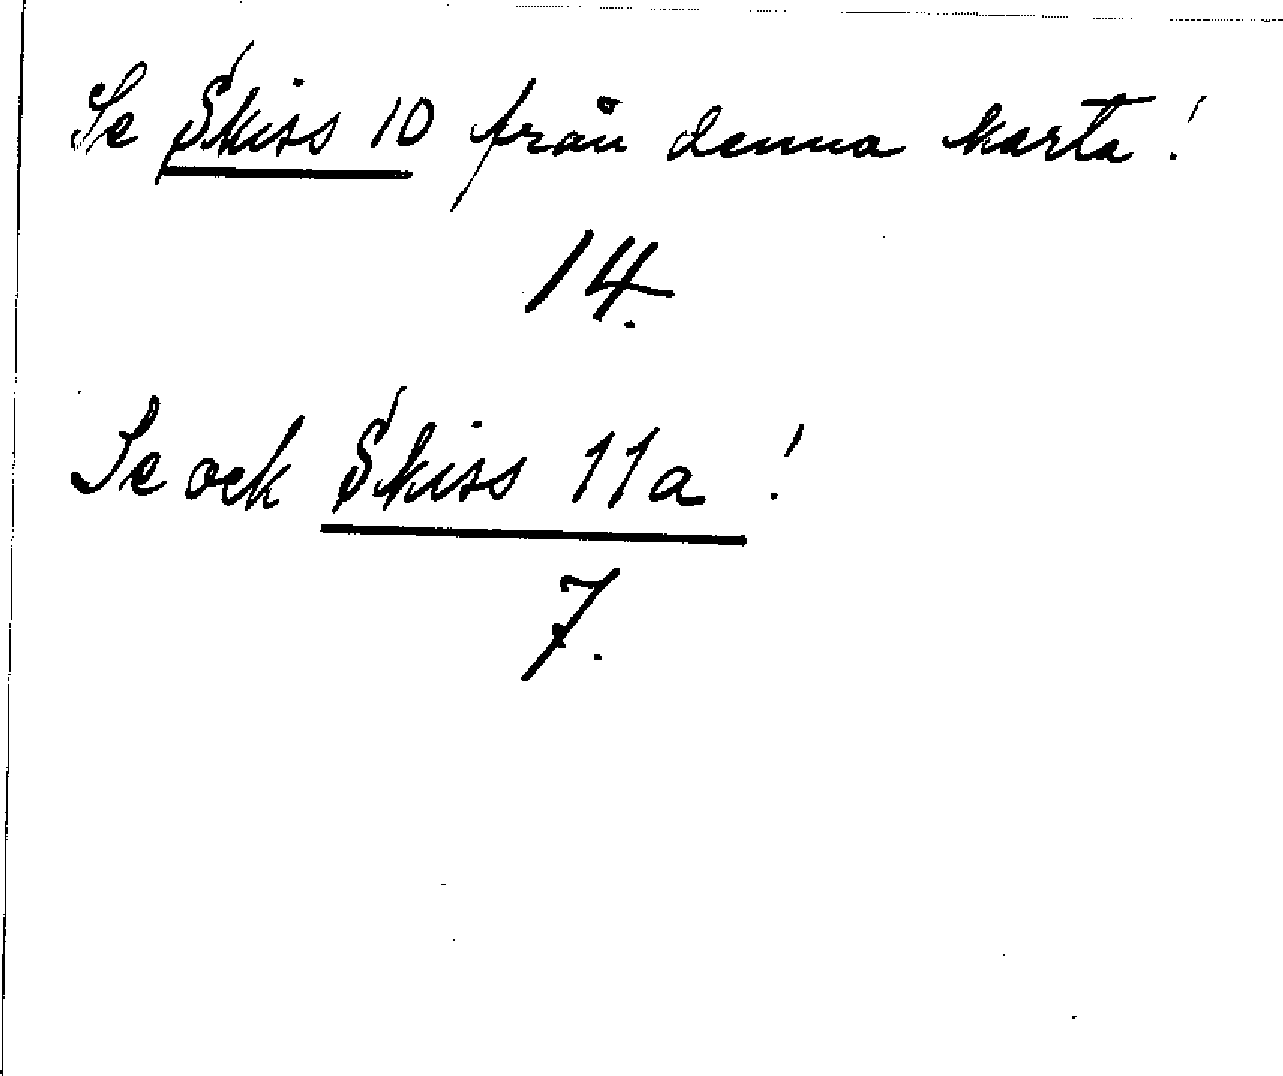 Se Skiss 10 från denna karta!
14.
Se ock Skiss 11a!
7.